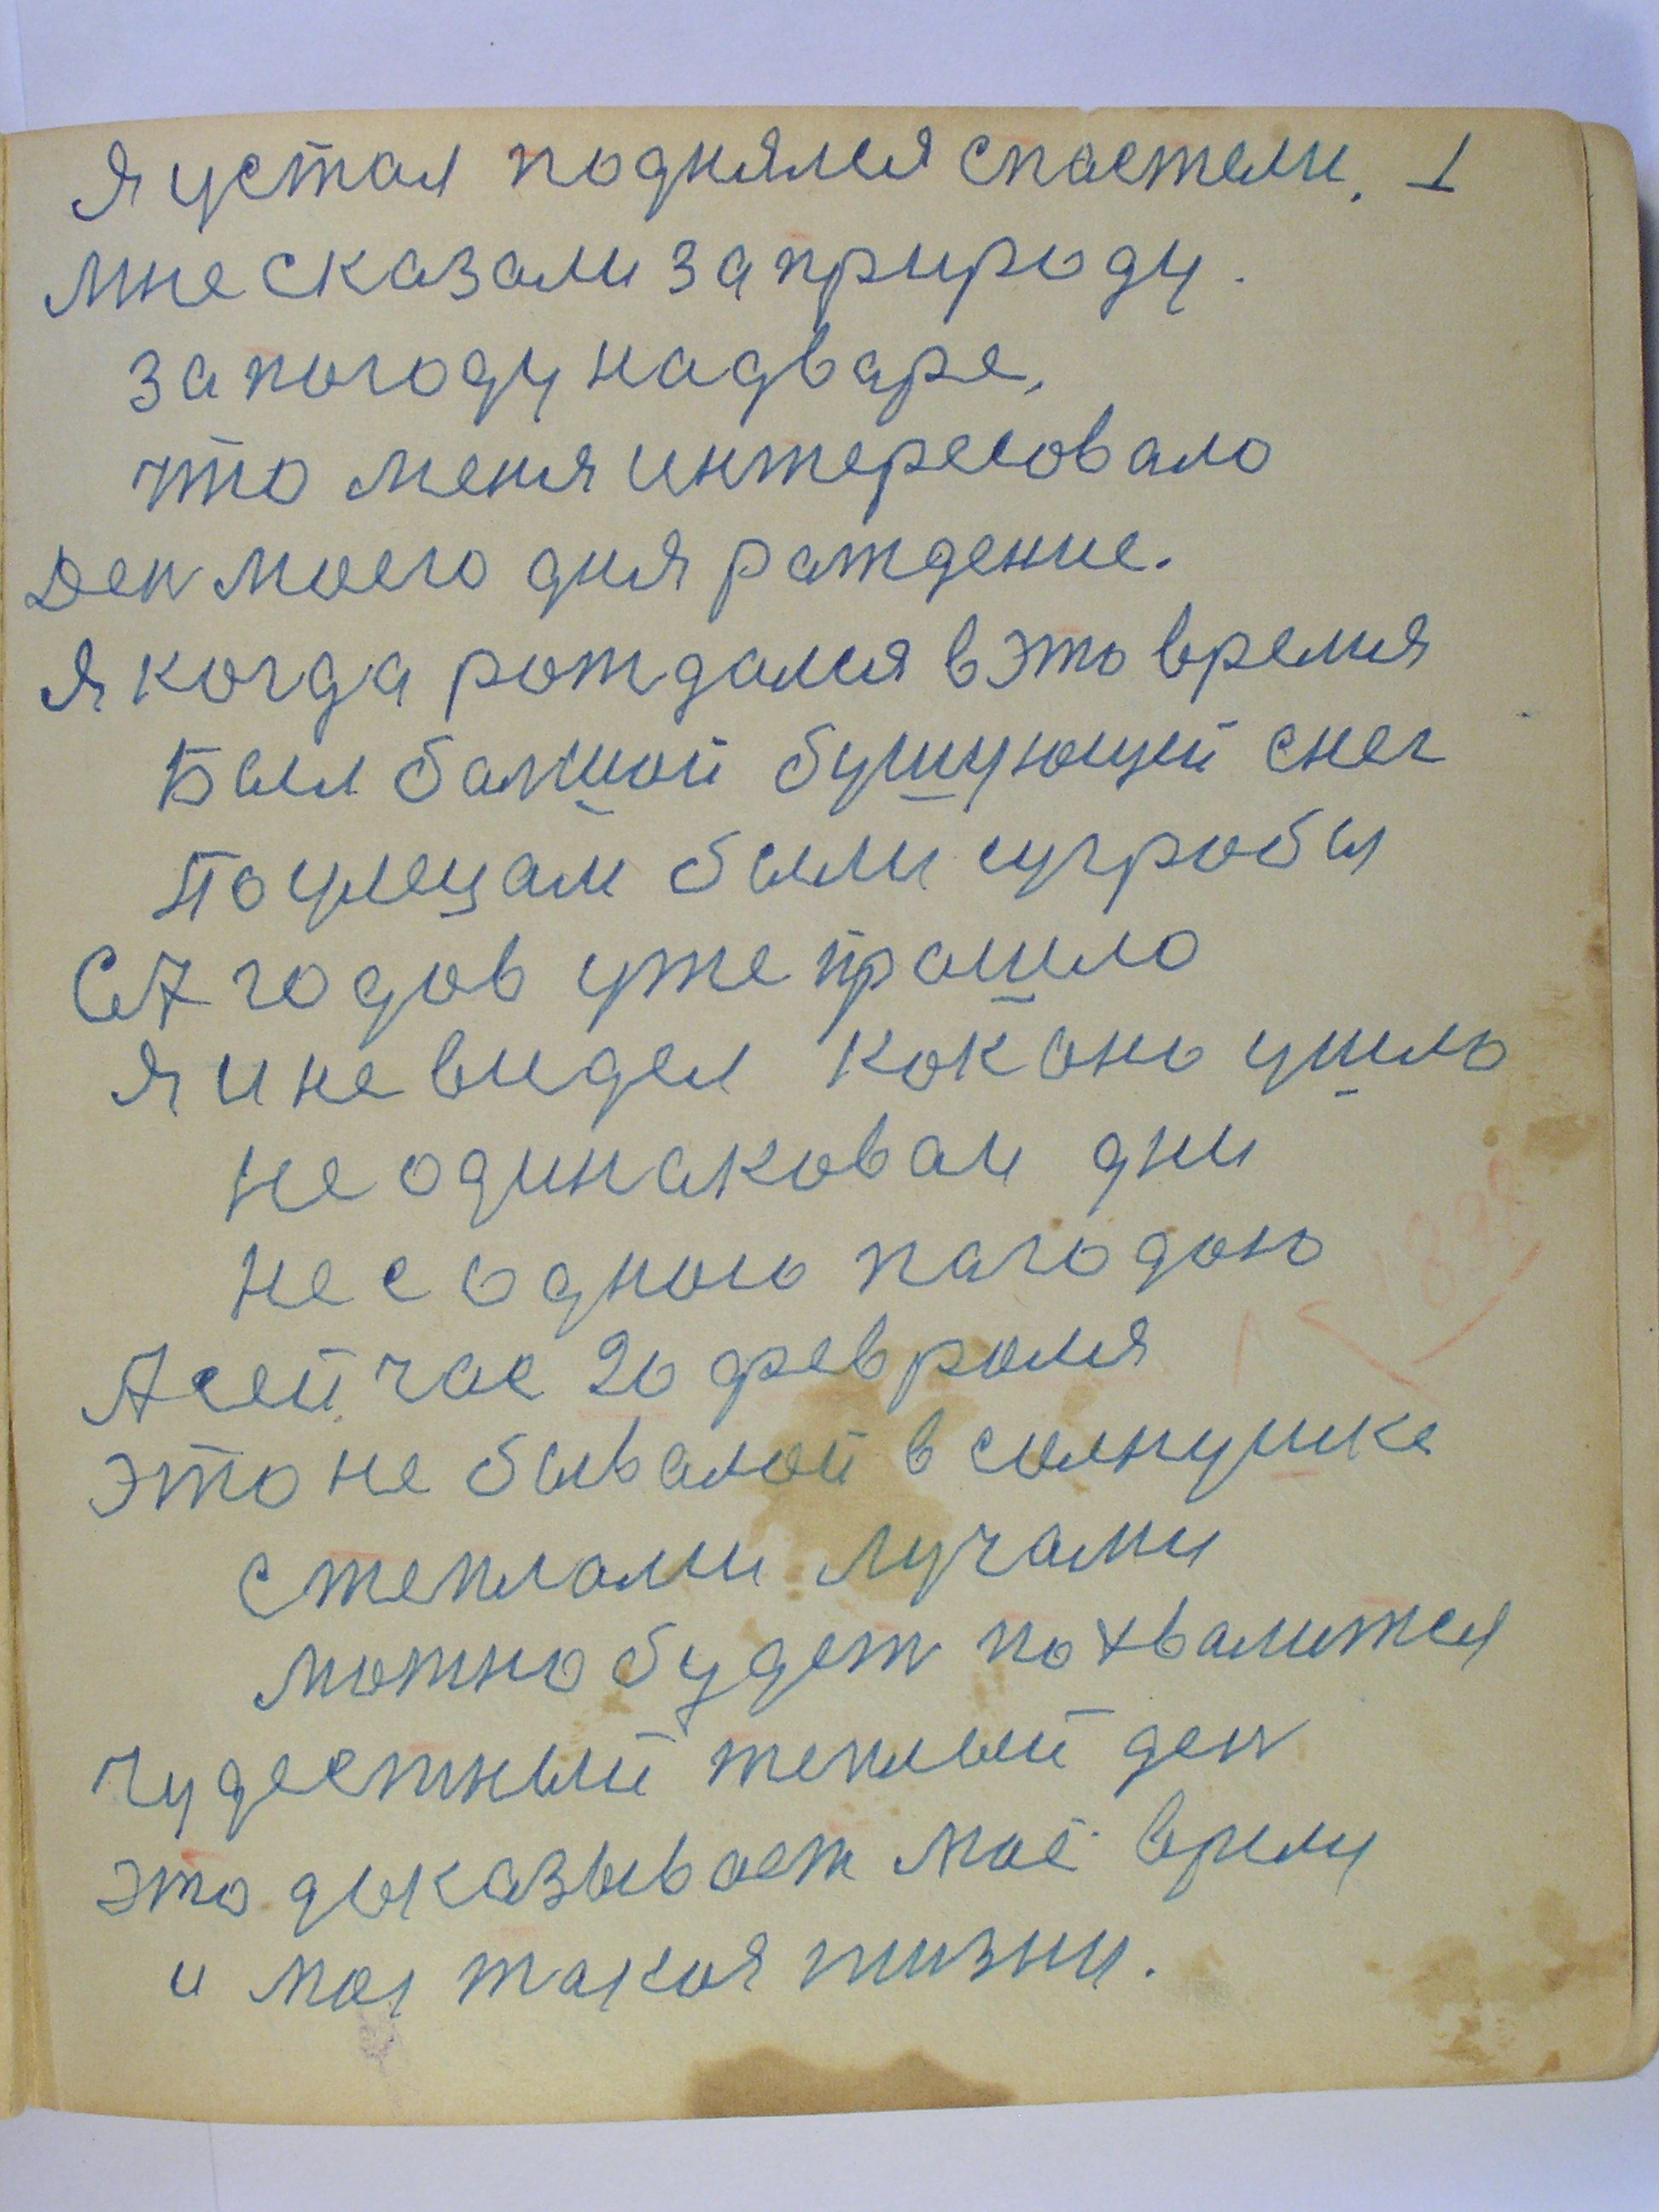 Я устал поднялся спастели. 1
мне сказали за природу.
за погоду надваре,
что меня интересовало
Ден моего дня раждение.
Я когда рождался в это время
Был балшой бушующий снег
По улецам были сугробы
67 годов уже прошло
Я и не видел как оно ушло
не одинаковаи дни
не содною пагодою
А сейчас 20 февраля
это не бывалой в солнушке
степлами лучами
можно будет похвалится
Чудестный теплый ден
это доказывает маё время
и моя такая жизни.